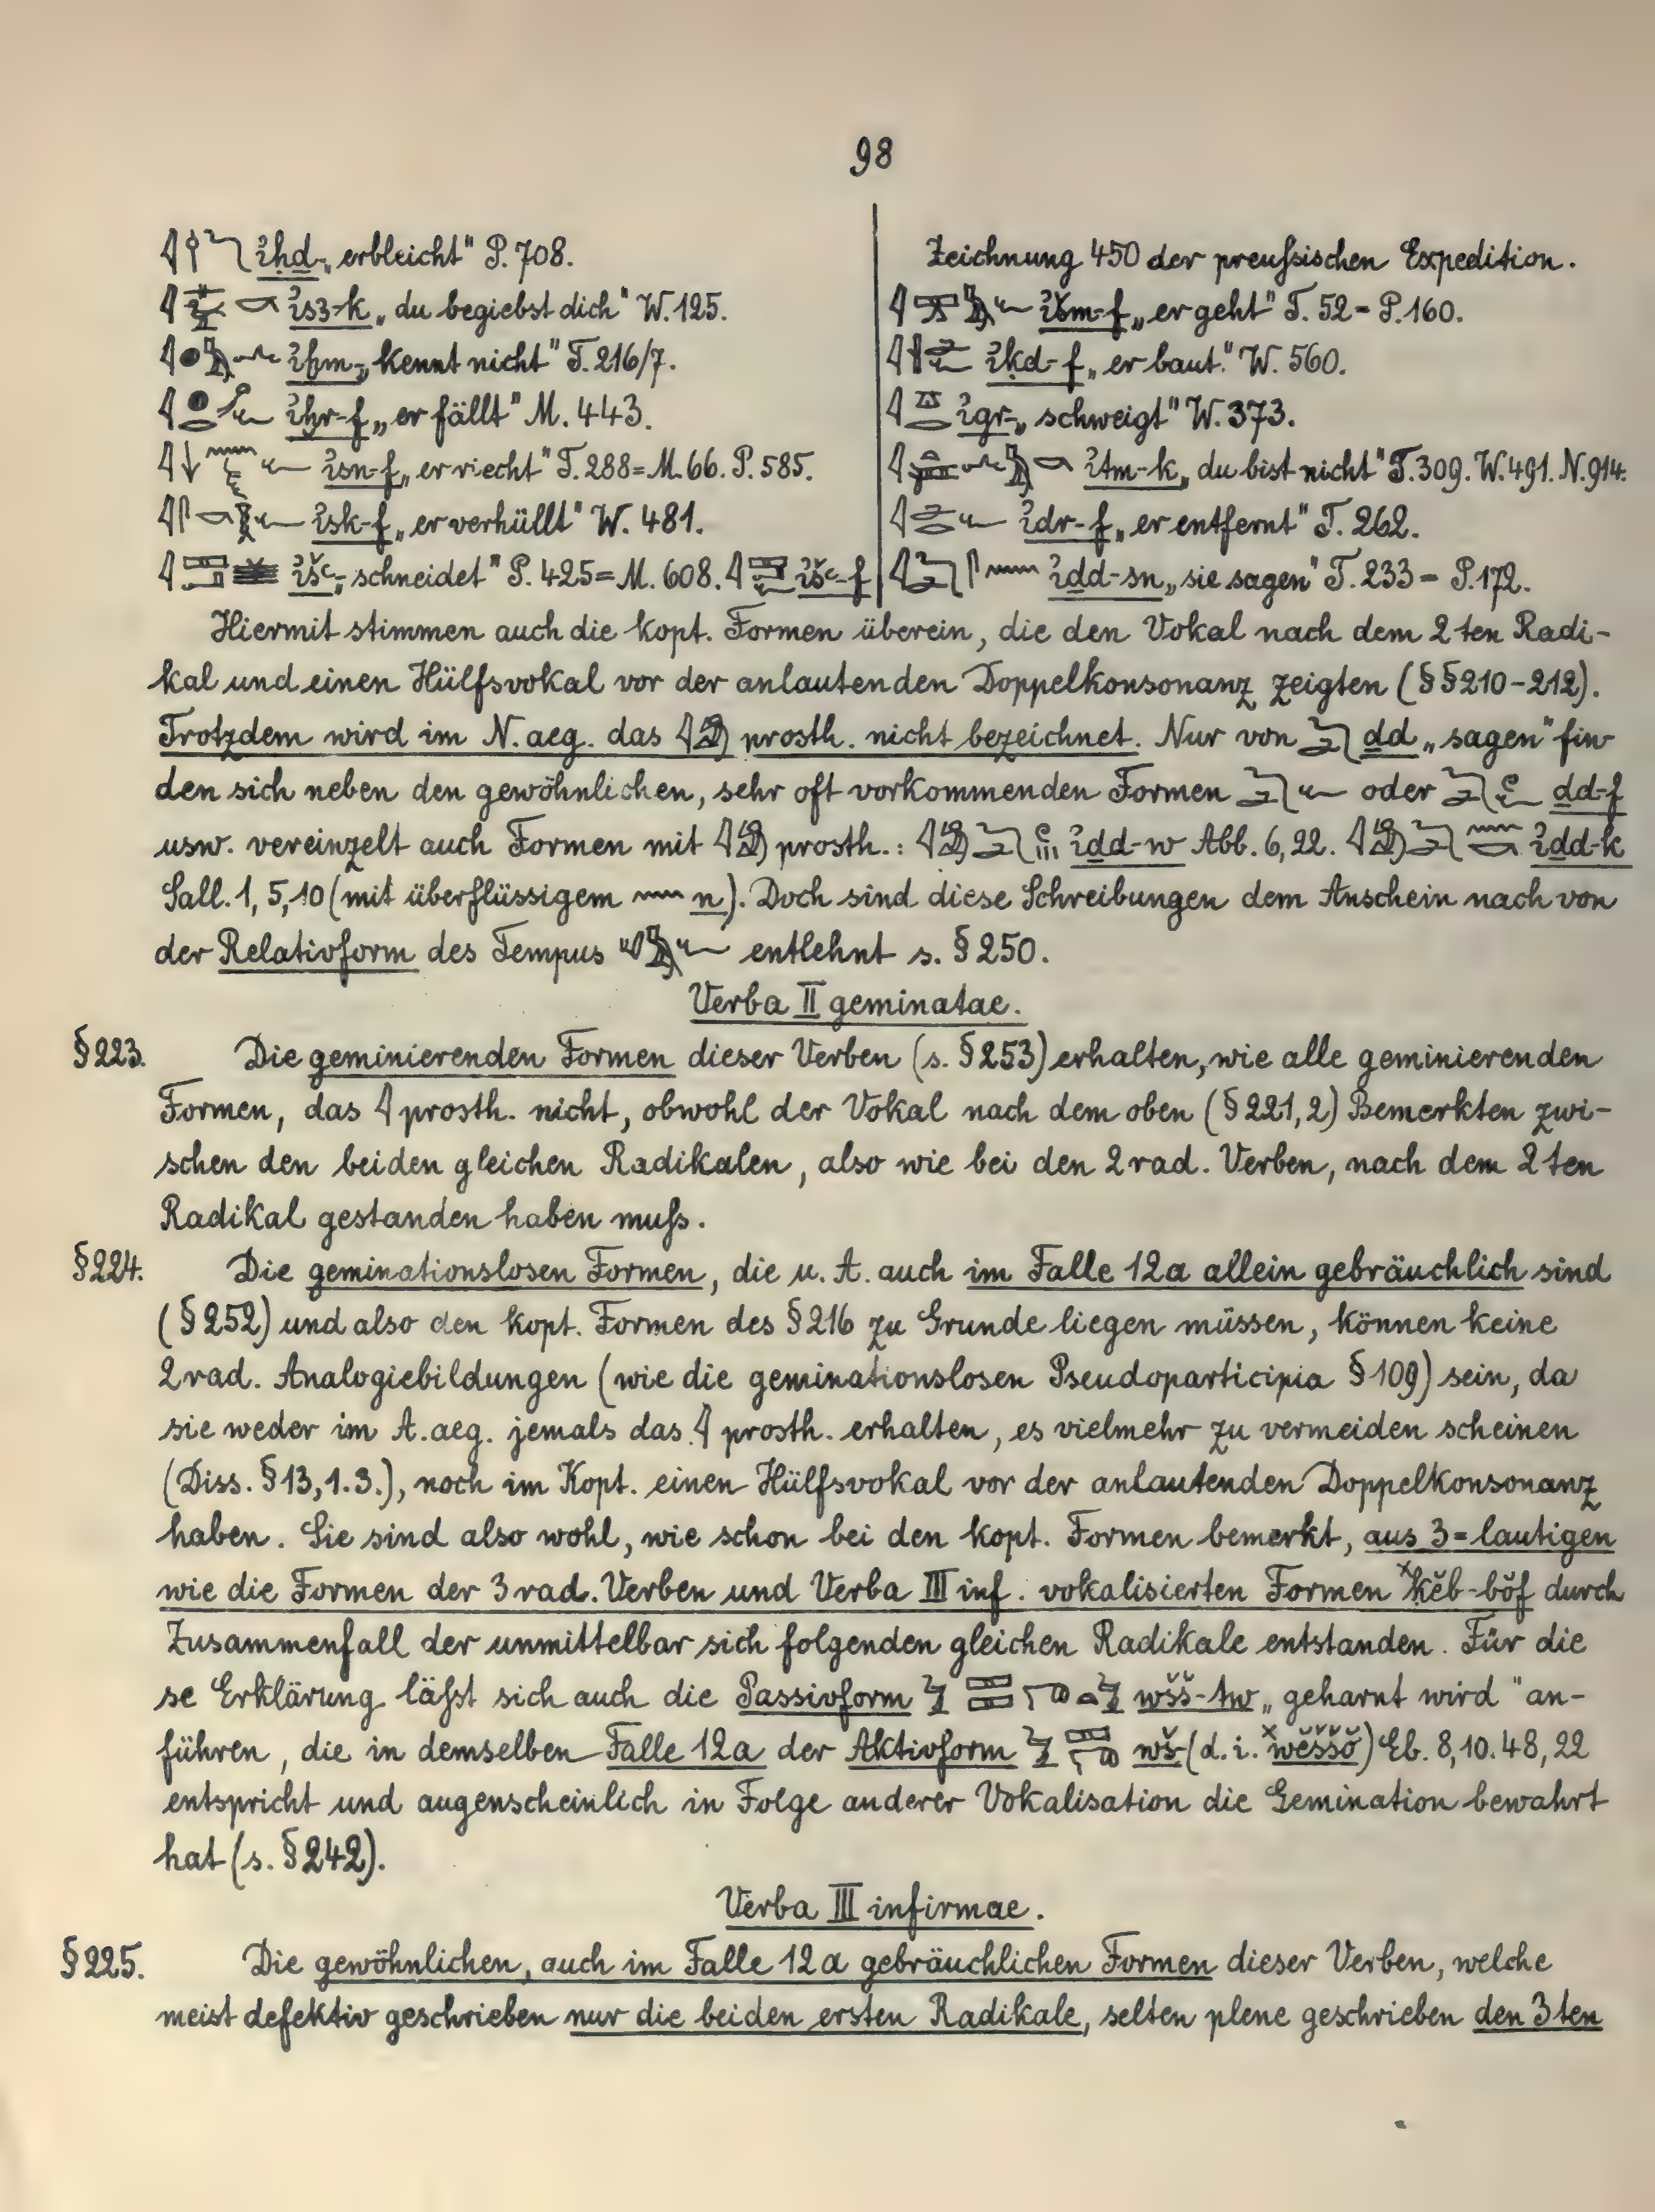 98
ỉḥḏ „erbleicht" P. 708.
ỉsꜣ-k „du begiebst dich" W. 125.
ỉḫm „kennt nicht" T. 216/7.
ỉḫr-f „er fällt" M. 443.
ỉsn-f „er riecht" T. 288 = M. 66. P. 585.
ỉsk-f „er verhüllt" W. 481.
ỉšꜥ „schneidet" P. 425 = M. 608. ỉšꜥ-f
Zeichnung 450 der preußsischen Expedition.
ỉšm-f „er geht" T. 52 = P. 160.
ỉḳd-f „er baut." W. 560.
ỉgr „schweigt" W. 373.
ỉtm-k „du bist nicht" T. 309. W. 491. N. 914.
ỉdr-f „er entfernt" T. 262.
ỉḏd-sn „sie sagen" T. 233 = P. 172.
Hiermit stimmen auch die kopt. Formen überein, die den Vokal nach dem 2ten Radi-
kal und einen Hülfsvokal vor der anlautenden Doppelkonsonanz zeigten (§§ 210-212).
Trotzdem wird im N. aeg. das prosth. nicht bezeichnet. Nur von ḏd „sagen" fin-
den sich neben den gewöhnlichen, sehr oft vorkommenden Formen oder ḏd-f
usw. vereinzelt auch Formen mit prosth.: ỉḏd-w Abb. 6, 22. ỉḏd-k
Sall. 1, 5, 10 (mit überflüssigem n). Doch sind diese Schreibungen dem Anschein nach von
der Relativform des Tempus entlehnt s. § 250.
Verba II geminatae.
§ 223. Die geminierenden Formen dieser Verben (s. § 253) erhalten, wie alle geminierenden
Formen, das prosth. nicht, obwohl der Vokal nach dem oben (§ 221, 2) Bemerkten zwi-
schen den beiden gleichen Radikalen, also wie bei den 2rad. Verben, nach dem 2ten
Radikal gestanden haben muß.
§ 224. Die geminationslosen Formen, die u. A. auch im Falle 12a allein gebräuchlich sind
(§ 252) und also den kopt. Formen des § 216 zu Grunde liegen müssen, können keine
2rad. Analogiebildungen (wie die geminationslosen Pseudoparticipia § 109) sein, da
sie weder im A. aeg. jemals das prosth. erhalten, es vielmehr zu vermeiden scheinen
(Diss. § 13, 1. 3.), noch im Kopt. einen Hülfsvokal vor der anlautenden Doppelkonsonanz
haben. Sie sind also wohl, wie schon bei den kopt. Formen bemerkt, aus 3=lautigen
wie die Formen der 3rad. Verben und Verba III inf. vokalisierten Formen ˣḳĕb-bŏf durch
Zusammenfall der unmittelbar sich folgenden gleichen Radikale entstanden. Für die
se Erklärung läßt sich auch die Passivform wšš-tw „geharnt wird" an-
führen, die in demselben Falle 12a der Aktivform wš (d. i. ˣwĕššŏ) Eb. 8, 10. 48, 22
entspricht und augenscheinlich in Folge anderer Vokalisation die Gemination bewahrt
hat (s. § 242).
Verba III infirmae.
§ 225. Die gewöhnlichen, auch im Falle 12a gebräuchlichen Formen dieser Verben, welche
meist defektiv geschrieben nur die beiden ersten Radikale, selten plene geschrieben den 3ten